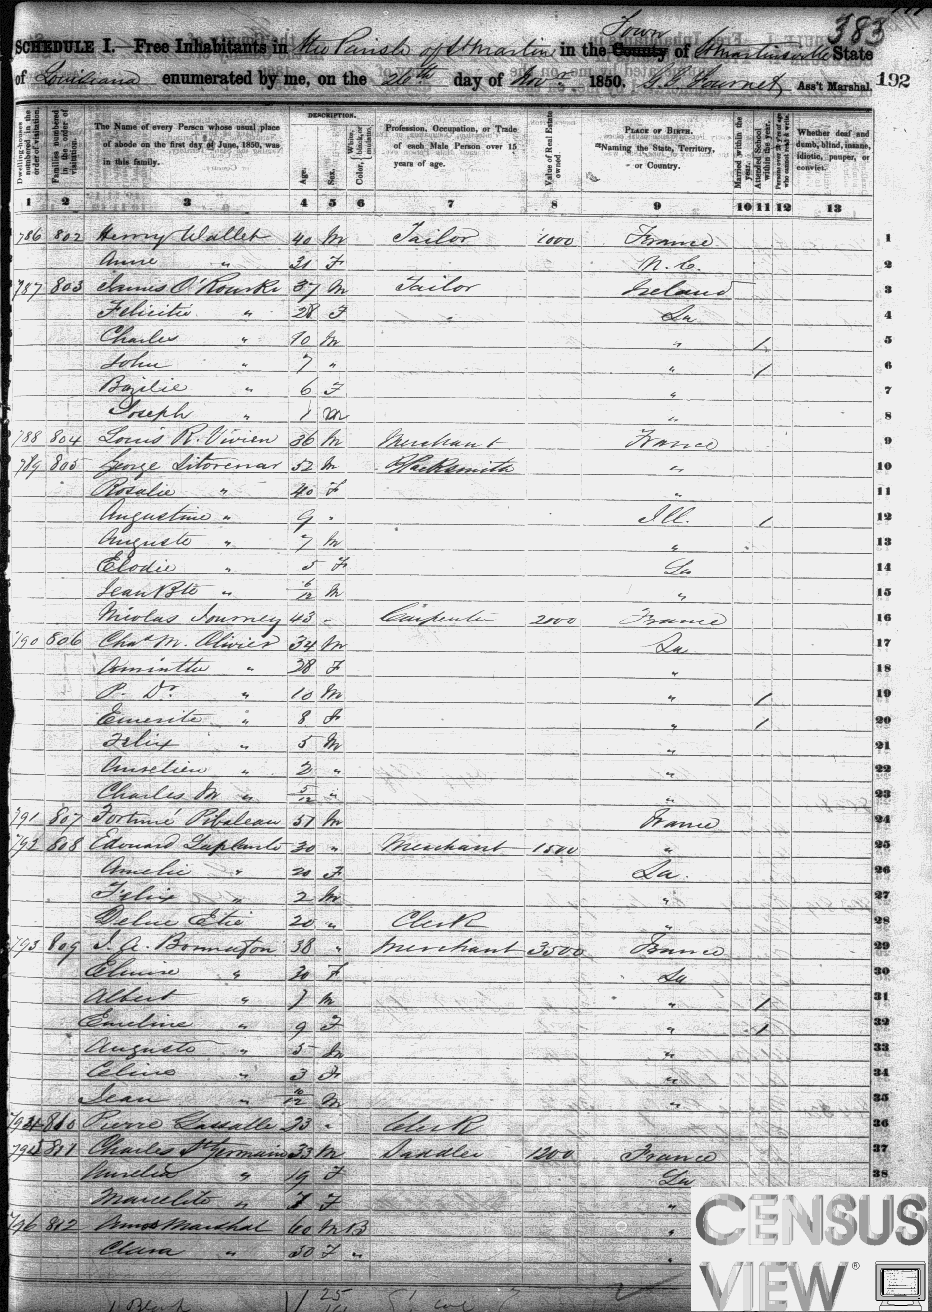 383
SCHEDULE I.—Free Inhabitants in the Parish of St Martin in the County Town of St Martinsville State
of Louisiana enumerated by me, on the 26th day of Nov 1850. Ass't Marshal. 192
Dwelling-houses numbered in the order of visitation.
Families numbered in the order of visitation.
The Name of every Person whose usual place of abode on the first day of June, 1850, was in this family.
DESCRIPTION.
Age.
Sex.
Color, White, black, or mulatto.
Profession, Occupation, or Trade of each Male Person over 15 years of age.
Value of Real Estate owned.
PLACE OF BIRTH.
Naming the State, Territory, or Country.
Married within the year.
Attended School within the year.
Persons over 20 y'rs of age who cannot read & write.
Whether deaf and dumb, blind, insane, idiotic, pauper, or convict.
1 2 3 4 5 6 7 8 9 10 11 12 13
786 802 Henry Wallet 40 M Tailor 1000 France 1
Anne " 31 F N. C. 2
787 803 James O'Rourke 37 M Tailor Ireland 3
Felicitie " 28 F " La 4
Charles " 10 M " 1 5
John " 7 " " 1 6
Bazilie " 6 F " 7
Joseph " 1 M " 8
788 804 Louis R. Vivien 36 M Merchant France 9
789 805 George 52 M Blacksmith " 10
Rosalie " 40 F " 11
Augustine " 9 " Ill. 1 12
Auguste " 7 M " 13
Elodie " 5 F La 14
Jean Bte " 6/12 M " 15
Nicolas Journey 43 " Carpenter 2000 France 16
790 806 Chas M. Olivier 34 M La 17
Amintte " 28 F " 18
P. Dr " 10 M " 1 19
Emerite " 8 F " 1 20
Felix " 5 M " 21
Aurelien " 2 " " 22
Charles M " 5/12 " " 23
791 807 Fortuné 51 M France 24
792 808 Edouard Laplante 30 " Merchant 1500 " 25
Amelie " 20 F La. 26
Felix " 2 M " 27
Etie 20 " Clerk " 28
793 809 38 " Merchant 3500 France 29
Elmire " 30 F La 30
Albert " 7 M " 1 31
Emeline " 9 F " 1 32
Auguste " 5 M " 33
Celine " 3 F " 34
Jean " 10/12 M " 35
794 810 Pierre Lassalle 23 " Clerk 36
795 811 Charles St Germain 33 M Saddler 1200 France 37
Aurelia " 19 F La 38
Marcelite " 1 F "
796 812 Amos Marshal 60 M B "
Clara " 30 F " "
CENSUS
VIEW®